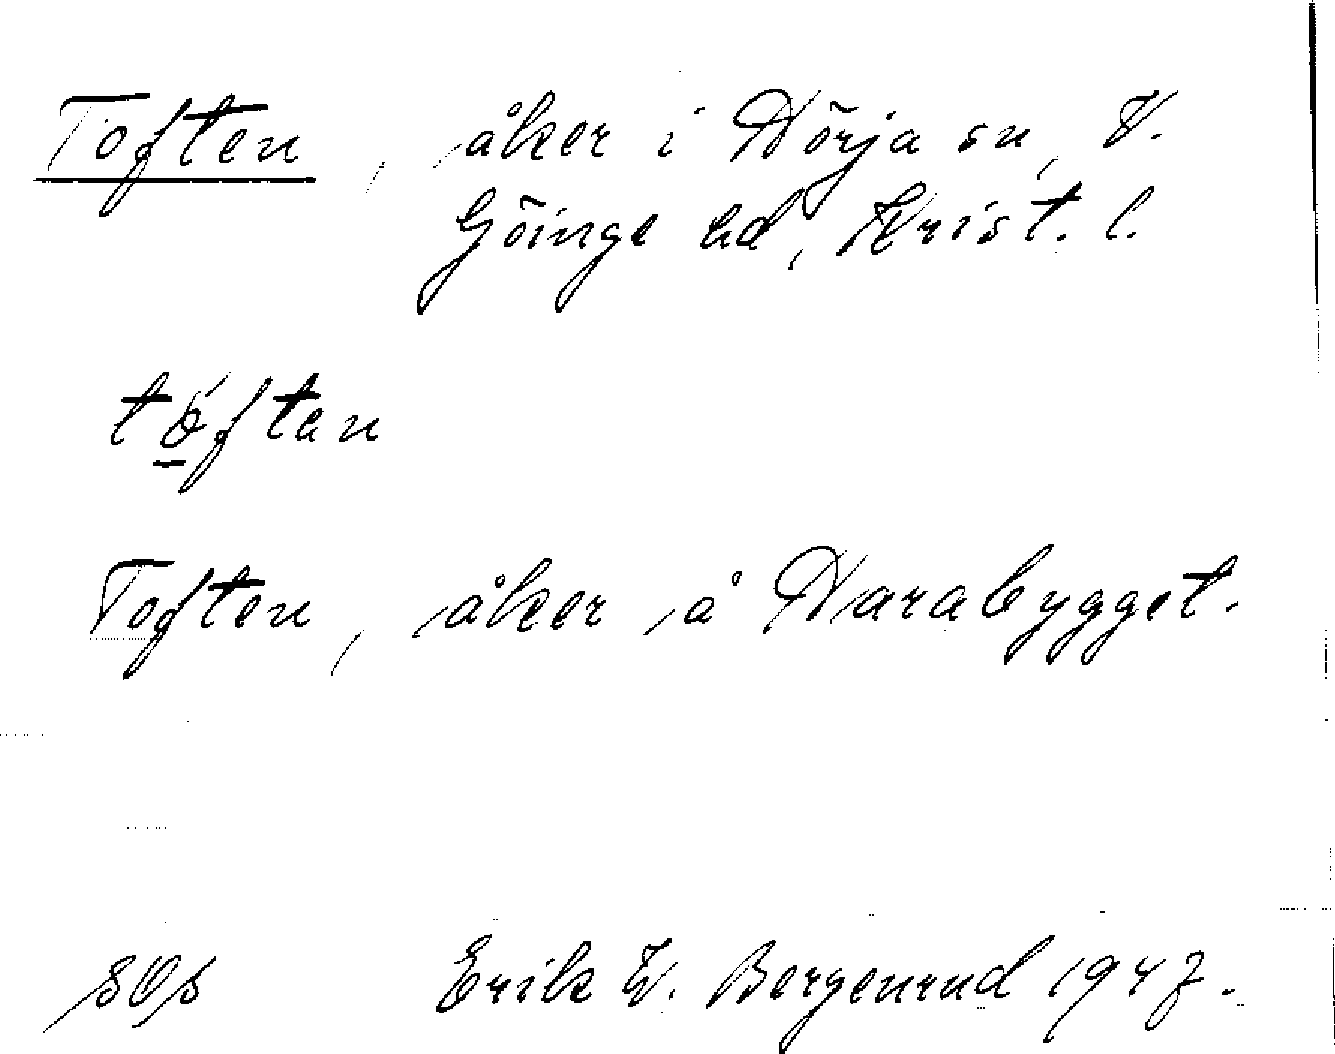 Toften, åker i Nörja sn, V.
Göinge hd, Krist. l.
töftan
Toften, åker å Narabygget.
Erik W. Bergenrud 1947.